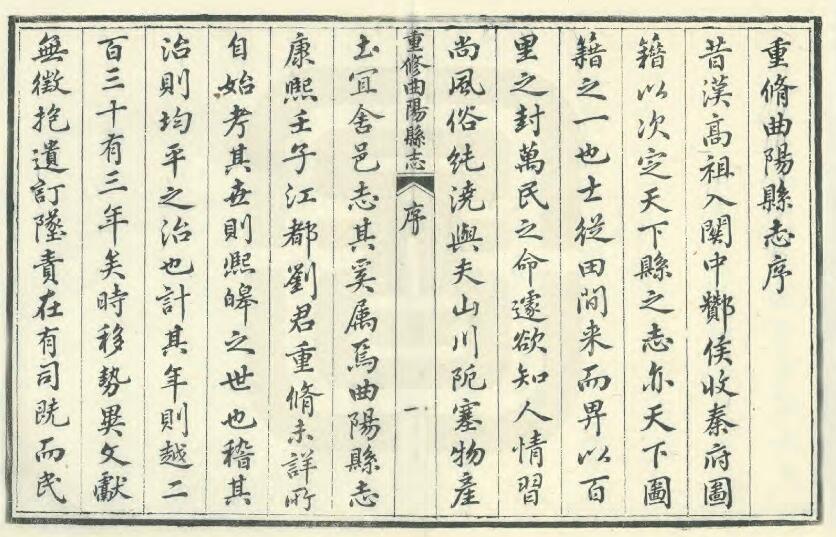 重脩曲陽縣志序
昔漢高祖入關中酇侯收秦府圖
籍以次定天下縣之志亦天下圖
籍之一也士從田間来而畀以百
里之封萬民之命遽欲知人情習
尚風俗純澆與夫山川阨塞物產
重修曲陽縣志 序 一
土宜舍邑志其奚属焉曲陽縣志
康熙壬子江都劉君重脩未詳所
自始考其世則熙皞之世也稽其
治則均平之治也計其年則越二
百三十有三年矣時移勢異文獻
無徵抱遺訂墜責在有司既而民